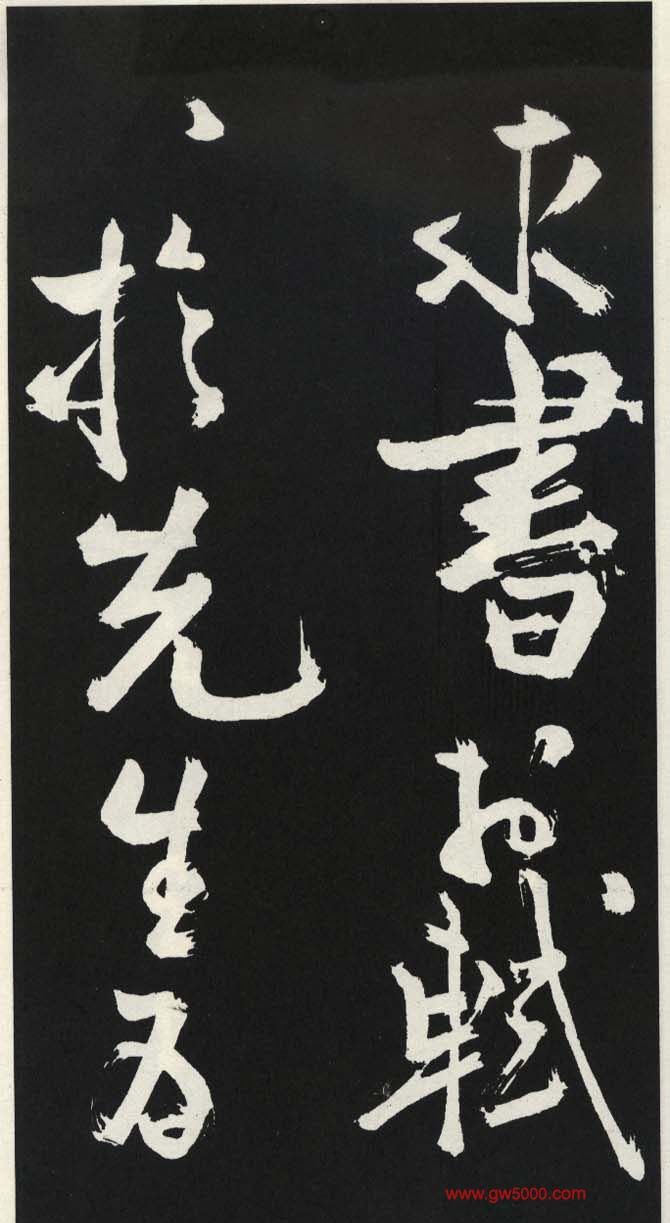 求書於軾
〻於先生為
www.gw5000.com